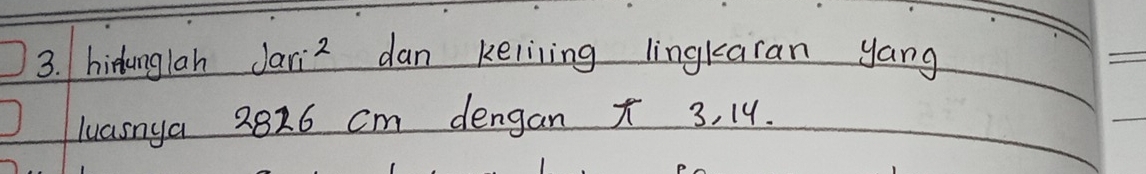 3. hitunglah Jari² dan keliling lingkaran yang
luasnya 2826 cm dengan π 3,14.